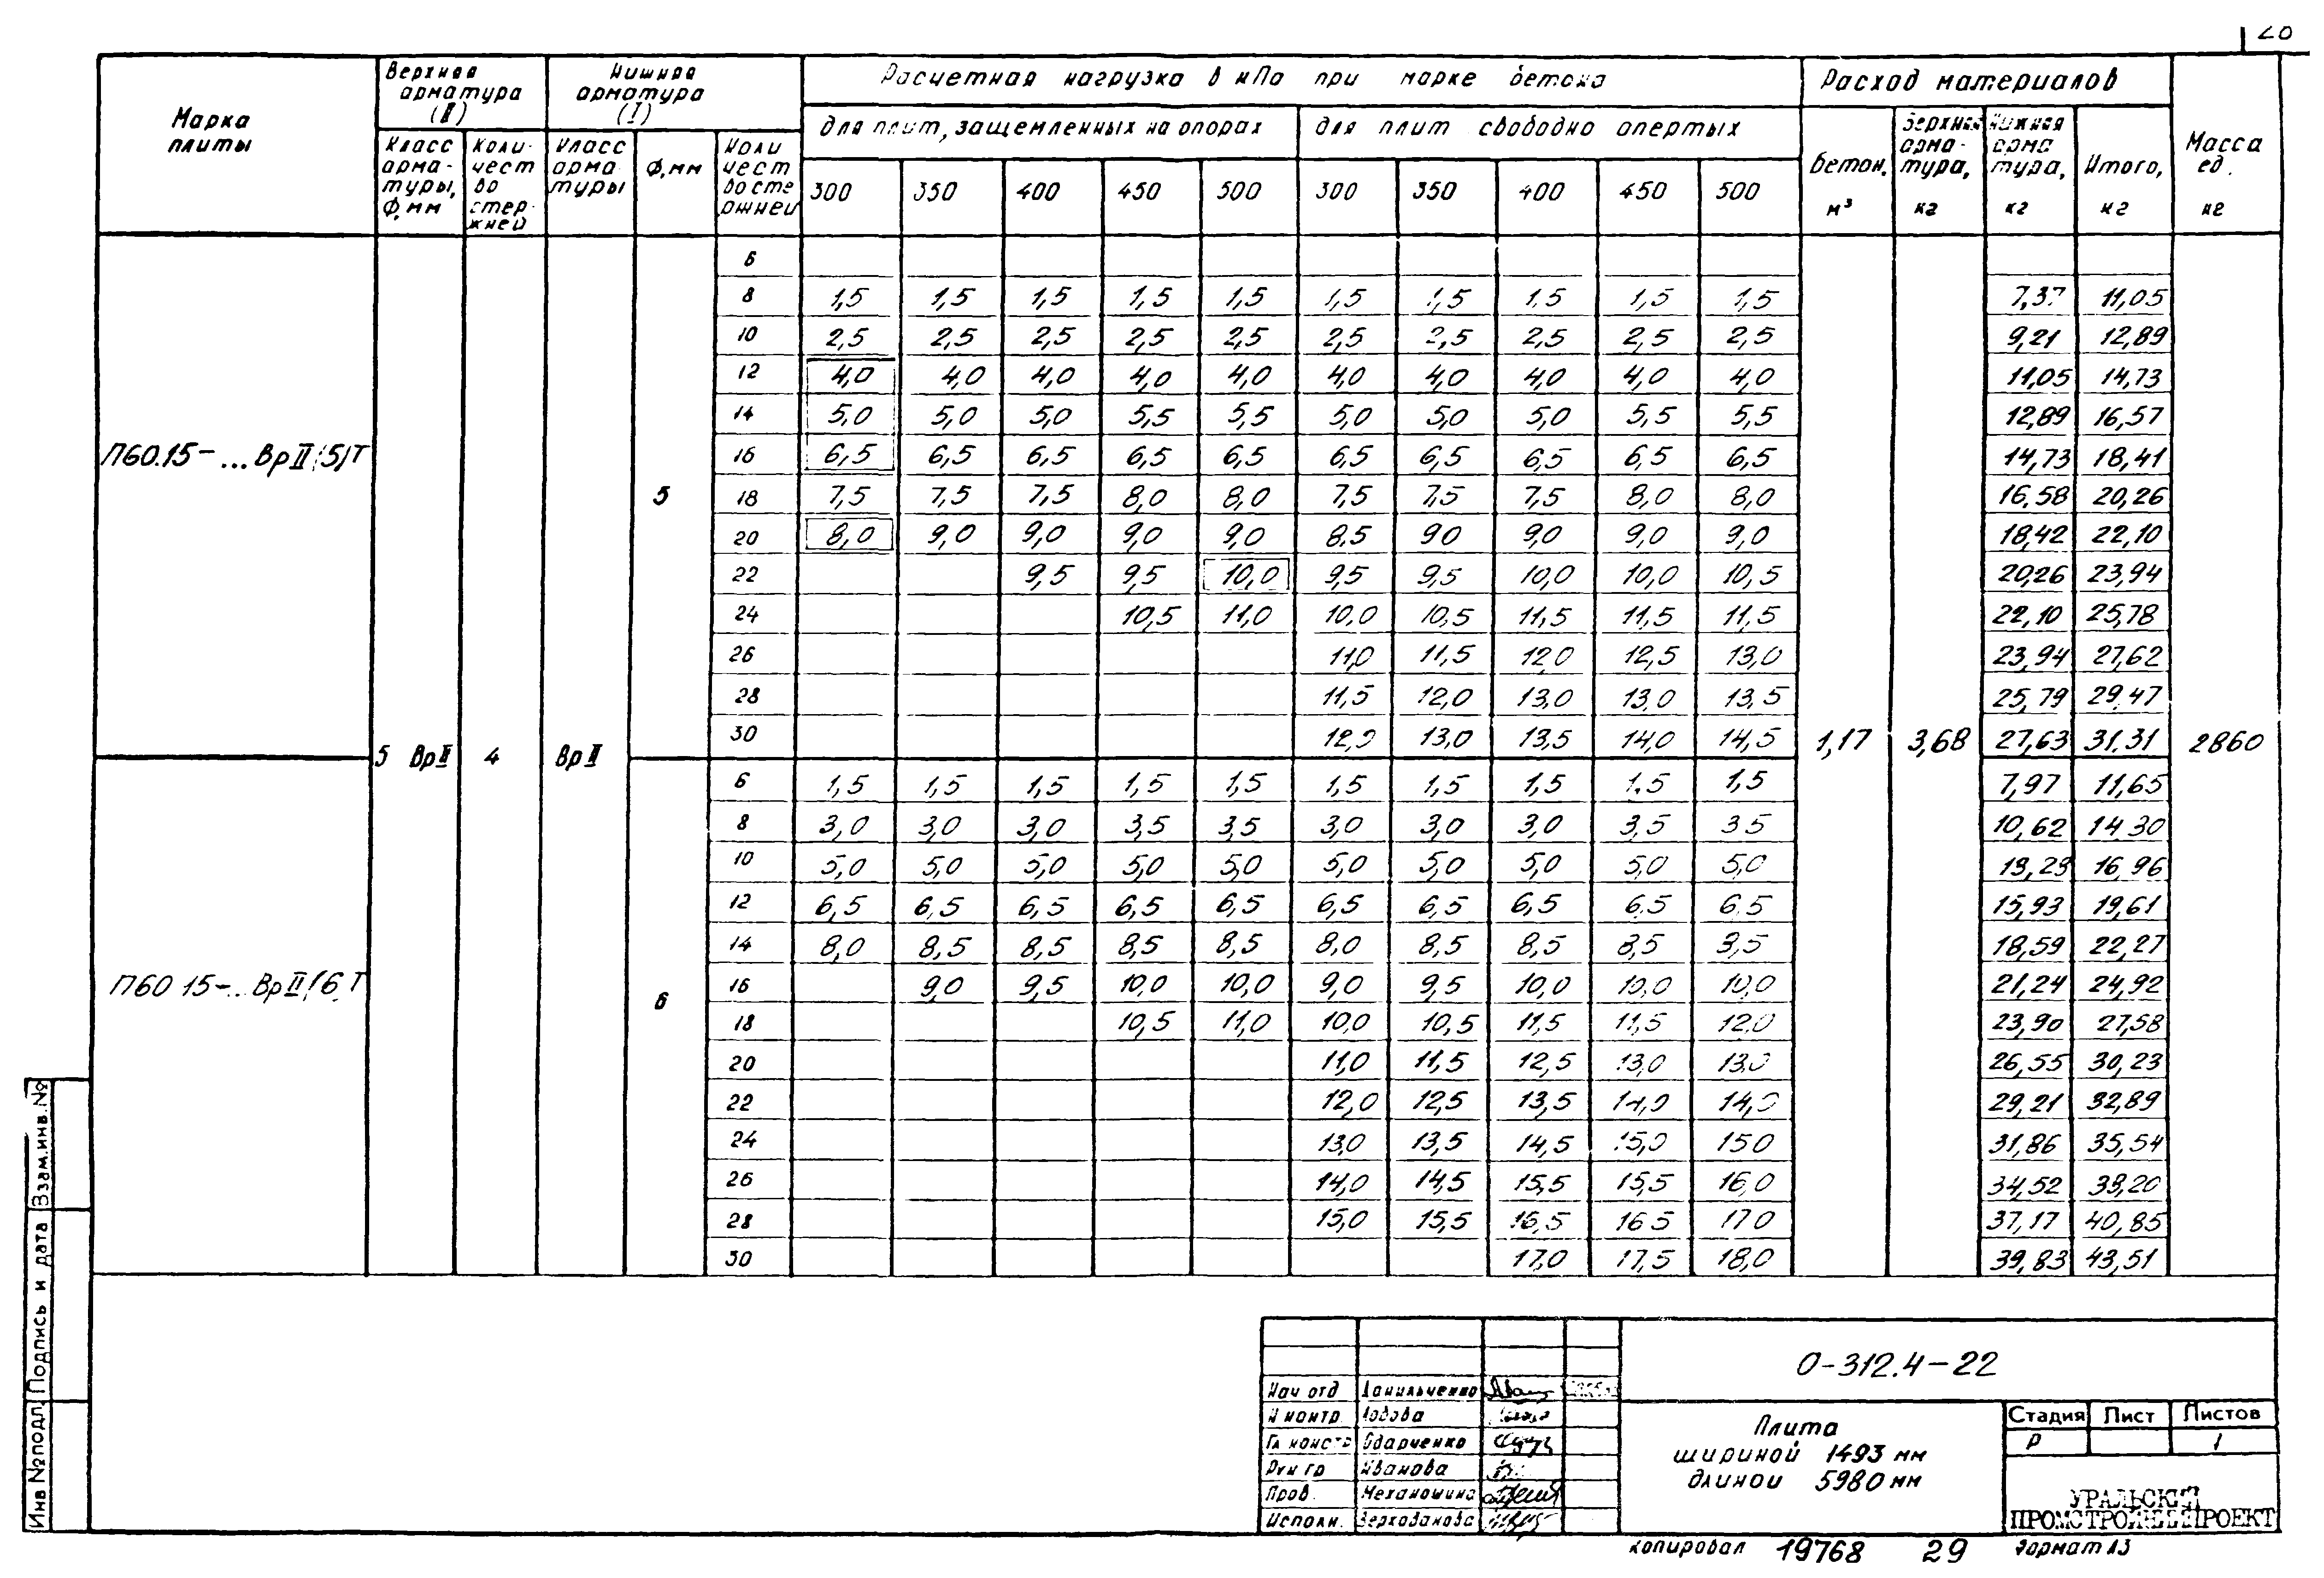 20
Марка плиты
Верхняя арматура (II)
Нижняя арматура (I)
Расчетная нагрузка в кПа при марке бетона
Расход материалов
Масса ед. кг
для плит, защемленных на опорах
для плит свободно опертых
Класс арма-туры, Ф, мм
Коли-чест во стер-жней
Класс арма туры
Ф, мм
Коли чест во сте ржней
300 350 400 450 500 300 350 400 450 500
бетон, м³
Верхняя арма-тура, кг
Нижняя арма тура, кг
Итого, кг
П60.15-...ВрII(5)Т
5 ВрII 4 ВрII
5
6
8 1,5 1,5 1,5 1,5 1,5 1,5 1,5 1,5 1,5 1,5 7,37 11,05
10 2,5 2,5 2,5 2,5 2,5 2,5 2,5 2,5 2,5 2,5 9,21 12,89
12 4,0 4,0 4,0 4,0 4,0 4,0 4,0 4,0 4,0 4,0 11,05 14,73
14 5,0 5,0 5,0 5,5 5,5 5,0 5,0 5,0 5,5 5,5 12,89 16,57
16 6,5 6,5 6,5 6,5 6,5 6,5 6,5 6,5 6,5 6,5 14,73 18,41
18 7,5 7,5 7,5 8,0 8,0 7,5 7,5 7,5 8,0 8,0 16,58 20,26
20 8,0 9,0 9,0 9,0 9,0 8,5 90 9,0 9,0 9,0 18,42 22,10
22 9,5 9,5 10,0 9,5 9,5 10,0 10,0 10,5 20,26 23,94
24 10,5 11,0 10,0 10,5 11,5 11,5 11,5 22,10 25,78
26 11,0 11,5 12,0 12,5 13,0 23,94 27,62
28 11,5 12,0 13,0 13,0 13,5 25,79 29,47
30 12,0 13,0 13,5 14,0 14,5 27,63 31,31
1,17 3,68 2860
П60 15-...ВрII(6)Т
6
6 1,5 1,5 1,5 1,5 1,5 1,5 1,5 1,5 1,5 1,5 7,97 11,65
8 3,0 3,0 3,0 3,5 3,5 3,0 3,0 3,0 3,5 3 5 10,62 14,30
10 5,0 5,0 5,0 5,0 5,0 5,0 5,0 5,0 5,0 5,0 13,28 16,96
12 6,5 6,5 6,5 6,5 6,5 6,5 6,5 6,5 6,5 6,5 15,93 19,61
14 8,0 8,5 8,5 8,5 8,5 8,0 8,5 8,5 8,5 8,5 18,59 22,27
16 9,0 9,5 10,0 10,0 9,0 9,5 10,0 10,0 10,0 21,24 24,92
18 10,5 11,0 10,0 10,5 11,5 11,5 12,0 23,90 27,58
20 11,0 11,5 12,5 13,0 13,0 26,55 30,23
22 12,0 12,5 13,5 14,0 14,0 29,21 32,89
24 13,0 13,5 14,5 15,0 15 0 31,86 35,54
26 14,0 14,5 15,5 15,5 16,0 34,52 38,20
28 15,0 15,5 16,5 16 5 17 0 37,17 40,85
30 17,0 17,5 18,0 39,83 43,51
Взам.инв.№
Подпись и дата
Инв №подл.
Нач отд Данильченко
Н контр Лодова
Гл констр Одарченко
Рук гр Иванова
Пров. Механошина
Исполн. Верхованова
О-312.4-22
Плита
шириной 1493 мм
длиной 5980 мм
Стадия Лист Листов
Р 1
УРАЛЬСКИЙ
ПРОМСТРОЙНИИПРОЕКТ
копировал 19768 29 формат А3